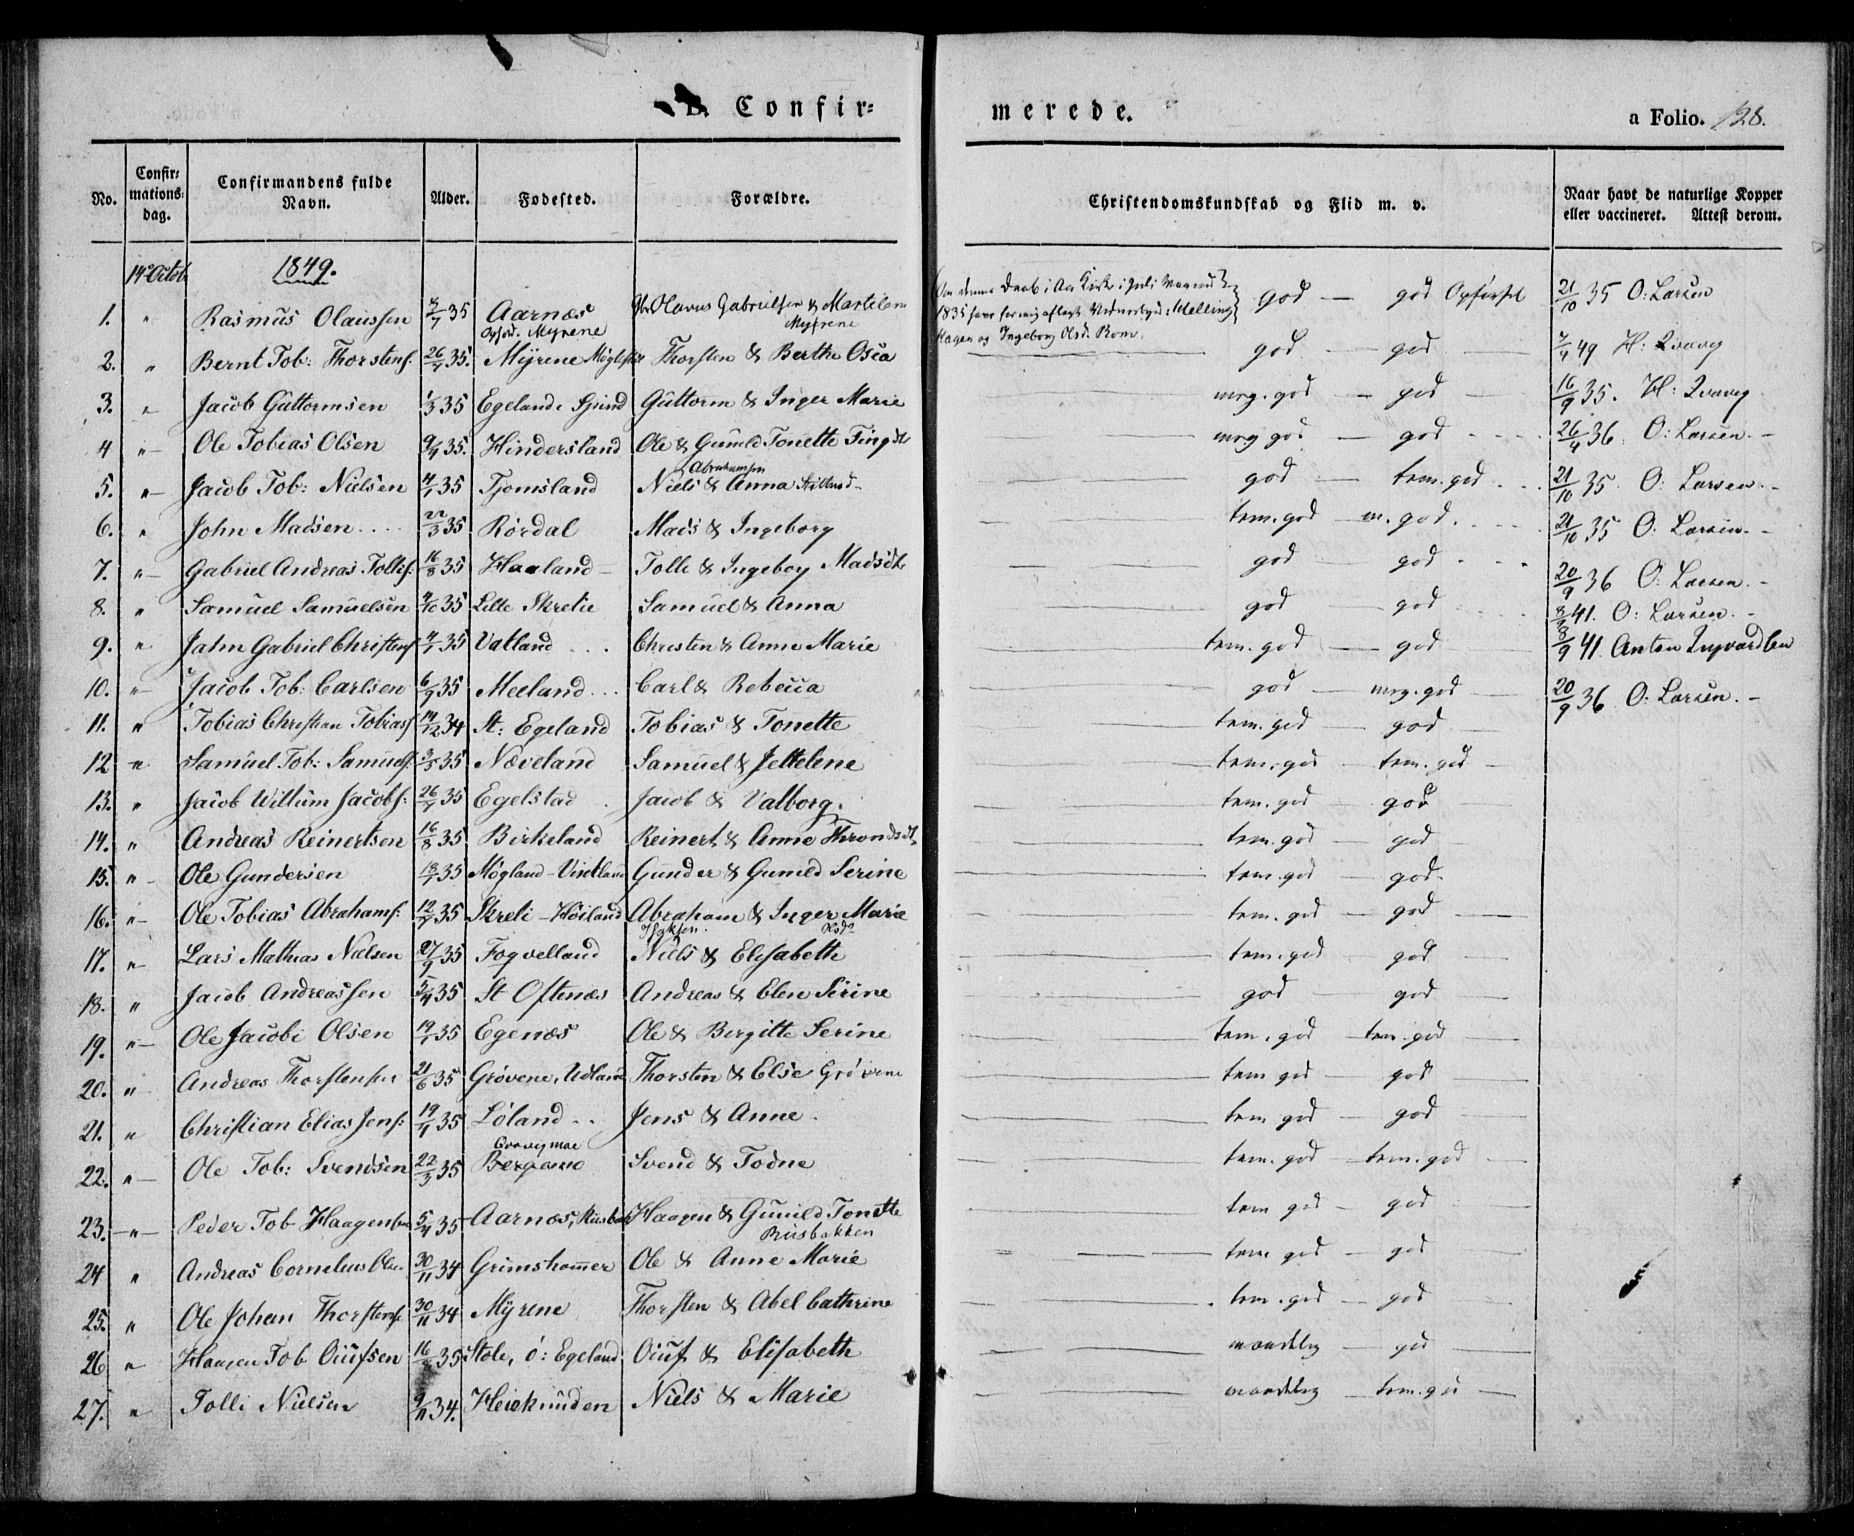 B. Confir-
merede.
a Folio. 128.
No. Confir-mations-dag. Confirmandens fulde Navn. Alder. Fødested. Forældre. Christendomskundskab og Flid m. v. Naar havt de naturlige Kopper eller vaccineret. Attest derom.
14de Octob 1849.
1. " Rasmus Olaussen /7 35 Aarnæs Opfød: Myrene Olavus Gabrielsen & Martilene Myhrene god — god Opførsel 21/10 35 O: Larsen
1835 Hagen og Ingeborg Olsd: Rom.
2. " Bernt Tob: Thorstens: 26/7 35. Myrene Thorsten & Berthe Osea god — god 7/7 49 H: Qvavig
3. " Jacob Guttormsen 1/3 35 Egeland i Guttorm & Inger Marie mrg. god — god 16/9 35. H: Qvavig
4 " Ole Tobias Olsen 9/4 35. Hindersland Ole & Gunild Tonette mrg god — god 26/4 36. O: Larsen. –
5. " Jacob Tob: Nielsen 4/7 35 Tjomsland Niels Abrahamsen & Anna god — tem. god 21/10 35. O: Larsen. –
6. " John Madsen 22/3 35 Rørdal Mads & Ingeborg tem. god — m. god. 21/10 35 O: Larsen. –
7. " Gabriel Andreas Tollefs: 16/8 35 Haaland Tolle & Ingeborg Madsdtr god — god 20/9 36 O: Larsen. –
8. " Samuel Samuelsen 4/10 35 Lille Skrelie Samuel & Anna god — god 41. O: Larsen. –
9. " Jahn Gabriel Christens 4/7 35 Vatland Christen & Anne Marie tem. god — god 8/9 41. Anton Ingvardsen
10. " Jacob Tob: Carlsen 6/9 35 Meeland Carl & Rebecca god — mrg. god 20/9 36 O: Larsen. –
11. " Tobias Christian Tobiass 14/12 34 St: Egeland Tobias & Tonette tem. god — god
12 " Samuel Tob: Samuels: 3/5 35 Næveland Samuel & Jettelene tem. god — tem. god
13. " Jacob Willum Jacobs: 26/7 35 Egelstad Jacob & Valborg. tem. god — god
14. " Andreas Reinertsen 16/8 35 Birkeland Reinert & Anne Throndsdt tem. god — god
15. " Ole Gundersen 18/7 35 Møgland-Vintland Gunder & Gunild Serine tem. god — god
16. " Ole Tobias Abrahams: 12/7 35 Skreli-Høiland Abraham & Inger Marie tem. god — god
17. " Lars Mathias Nielsen 27/9 35 Fogvelland Niels & Elisabeth tem. god — god
18. " Jacob Andreassen 5/4 35 St Oftenæs Andreas & Elen Serine god — god
19. " Ole Jacobi Olsen 19/7 35 Egenæs Ole & Birgitte Serine tem. god — tem. god
20. " Andreas Thorstensen 21/6 35 Grøvene, Udland Thorsten & Else Grøvene tem god — god
21. " Christian Elias Jens: 19/4 35 Løland Jens & Anne tem. god — god
22. " Ole Tob: Svendsen 22/3 35 Svend & Todne tem. god — tem. god
23. " Peder Tob Haagensen 5/4 35 Aarnæs, Haagen & Gunild Tonette Riisbakken tem god — god
24 " Andreas Cornelius Olsen 30/11 34 Grimshammer Ole & Anne Marie tem god — god
25. " Ole Johan Thorstens: 30/11 34 Myrene Thorsten & Abel Cathrine tem. god — god
26 " Haagen Tob Oiufsen 16/ 35 Stole, ø: Egeland Oiuf & Elisabeth maadelig — god
27. " Tolli Nielsen 9/11 34. Heiskunden Niels & Marie maadelig — tem. god